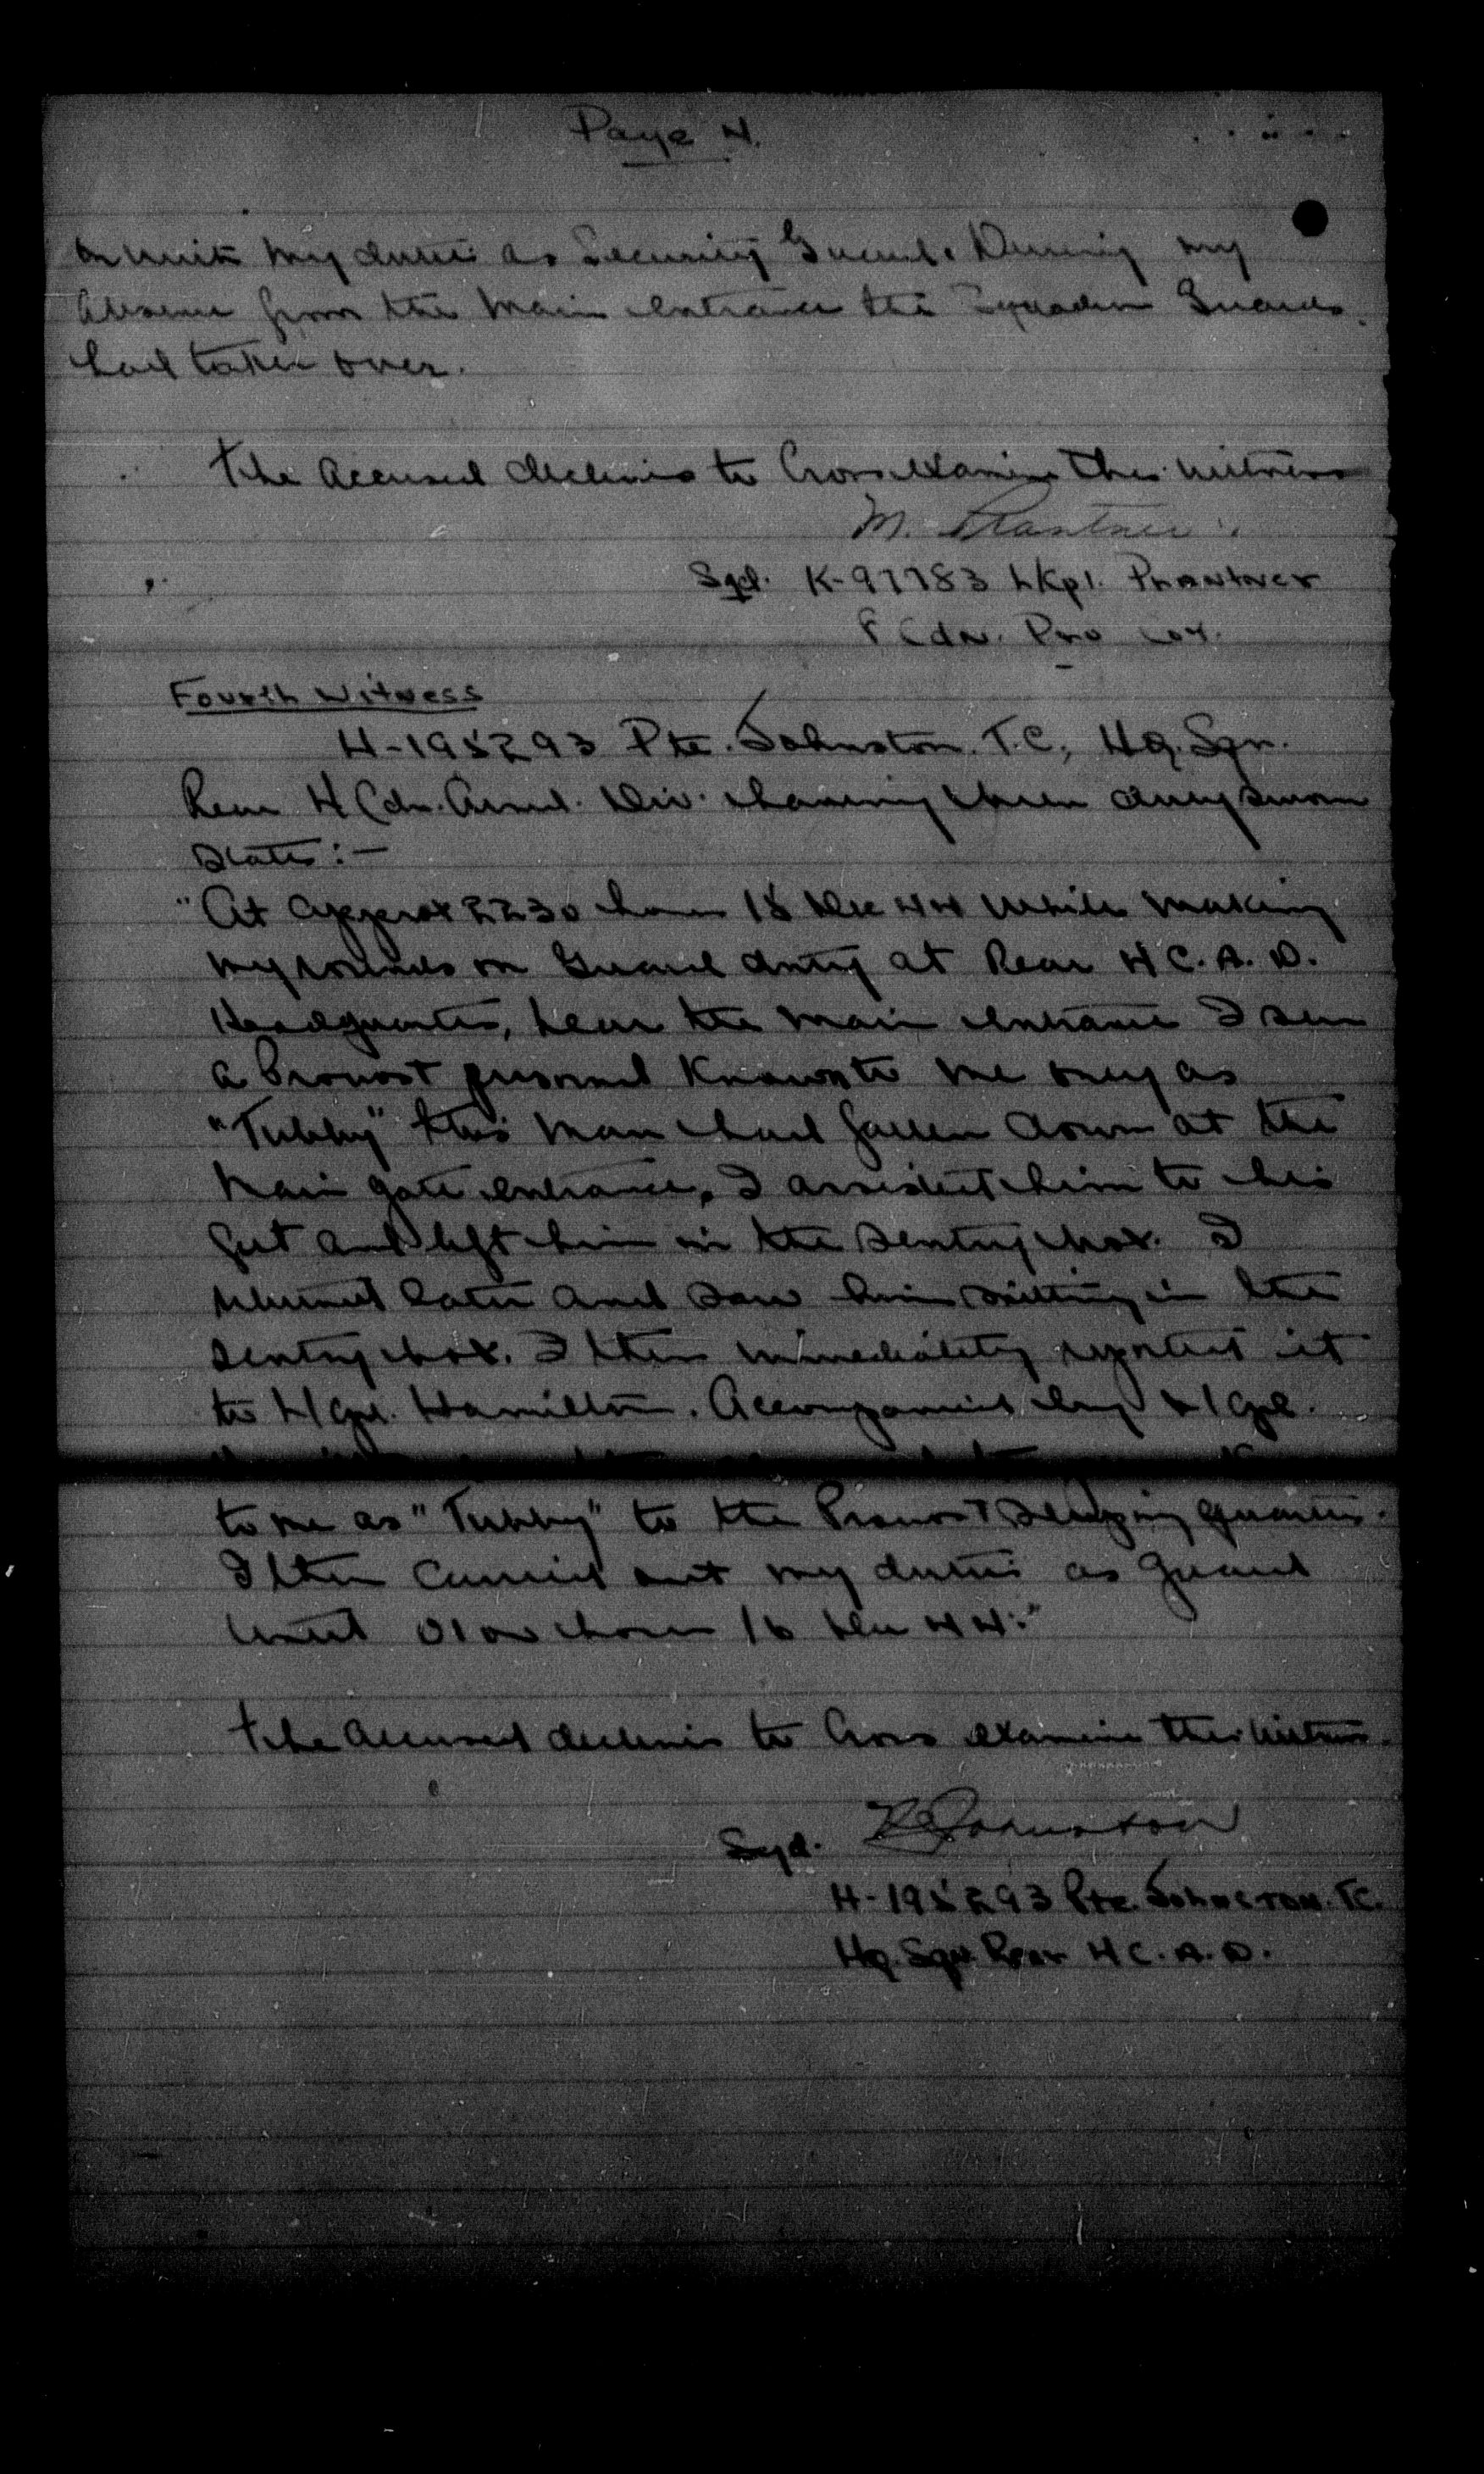 Page 4.
my duties as Security Guard. During my
absence from the main entrance the Squadron Guards
had taken over.
The accused declines to Cross examine this witness
M. Prantner
Sgd. K-97783 L/Cpl. Prantner
8 Cdn. Pro Coy.
Fourth Witness
H-195293 Pte. Johnston. T.C, Hq. Sqn.
Rear 4 Cdn. Armd. Div. having been duly sworn
states:-
"At approx 2230 hours 15 Dec 44 while making
my rounds on Guard duty at Rear 4 C.A.D.
Headquarters, near the main entrance I seen
a Provost personnel known to me only as
"Tubby" this man had fallen down at the
main gate entrance. I assisted him to his
feet and left him in the sentry box. I
returned later and saw him sitting in the
sentry box. I then immediately reported it
to L/Cpl. Hamilton. Accompanied by L/Cpl.
to me as "Tubby" to the Provost sleeping quarters.
I then carried out my duties as guard
until 0100 hours 16 Dec 44."
The accused declines to Cross examine this witness.
Sgd. TC Johnston
H-195293 Pte. Johnston. TC.
Hq. Sqn Rear 4 C.A.D.